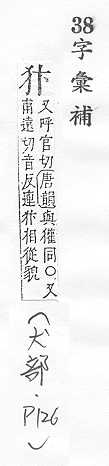 38字彙補
犿
又呼官切唐韻與獾同○又
甫遠切音反連犿相從貌
(犬部·P126)